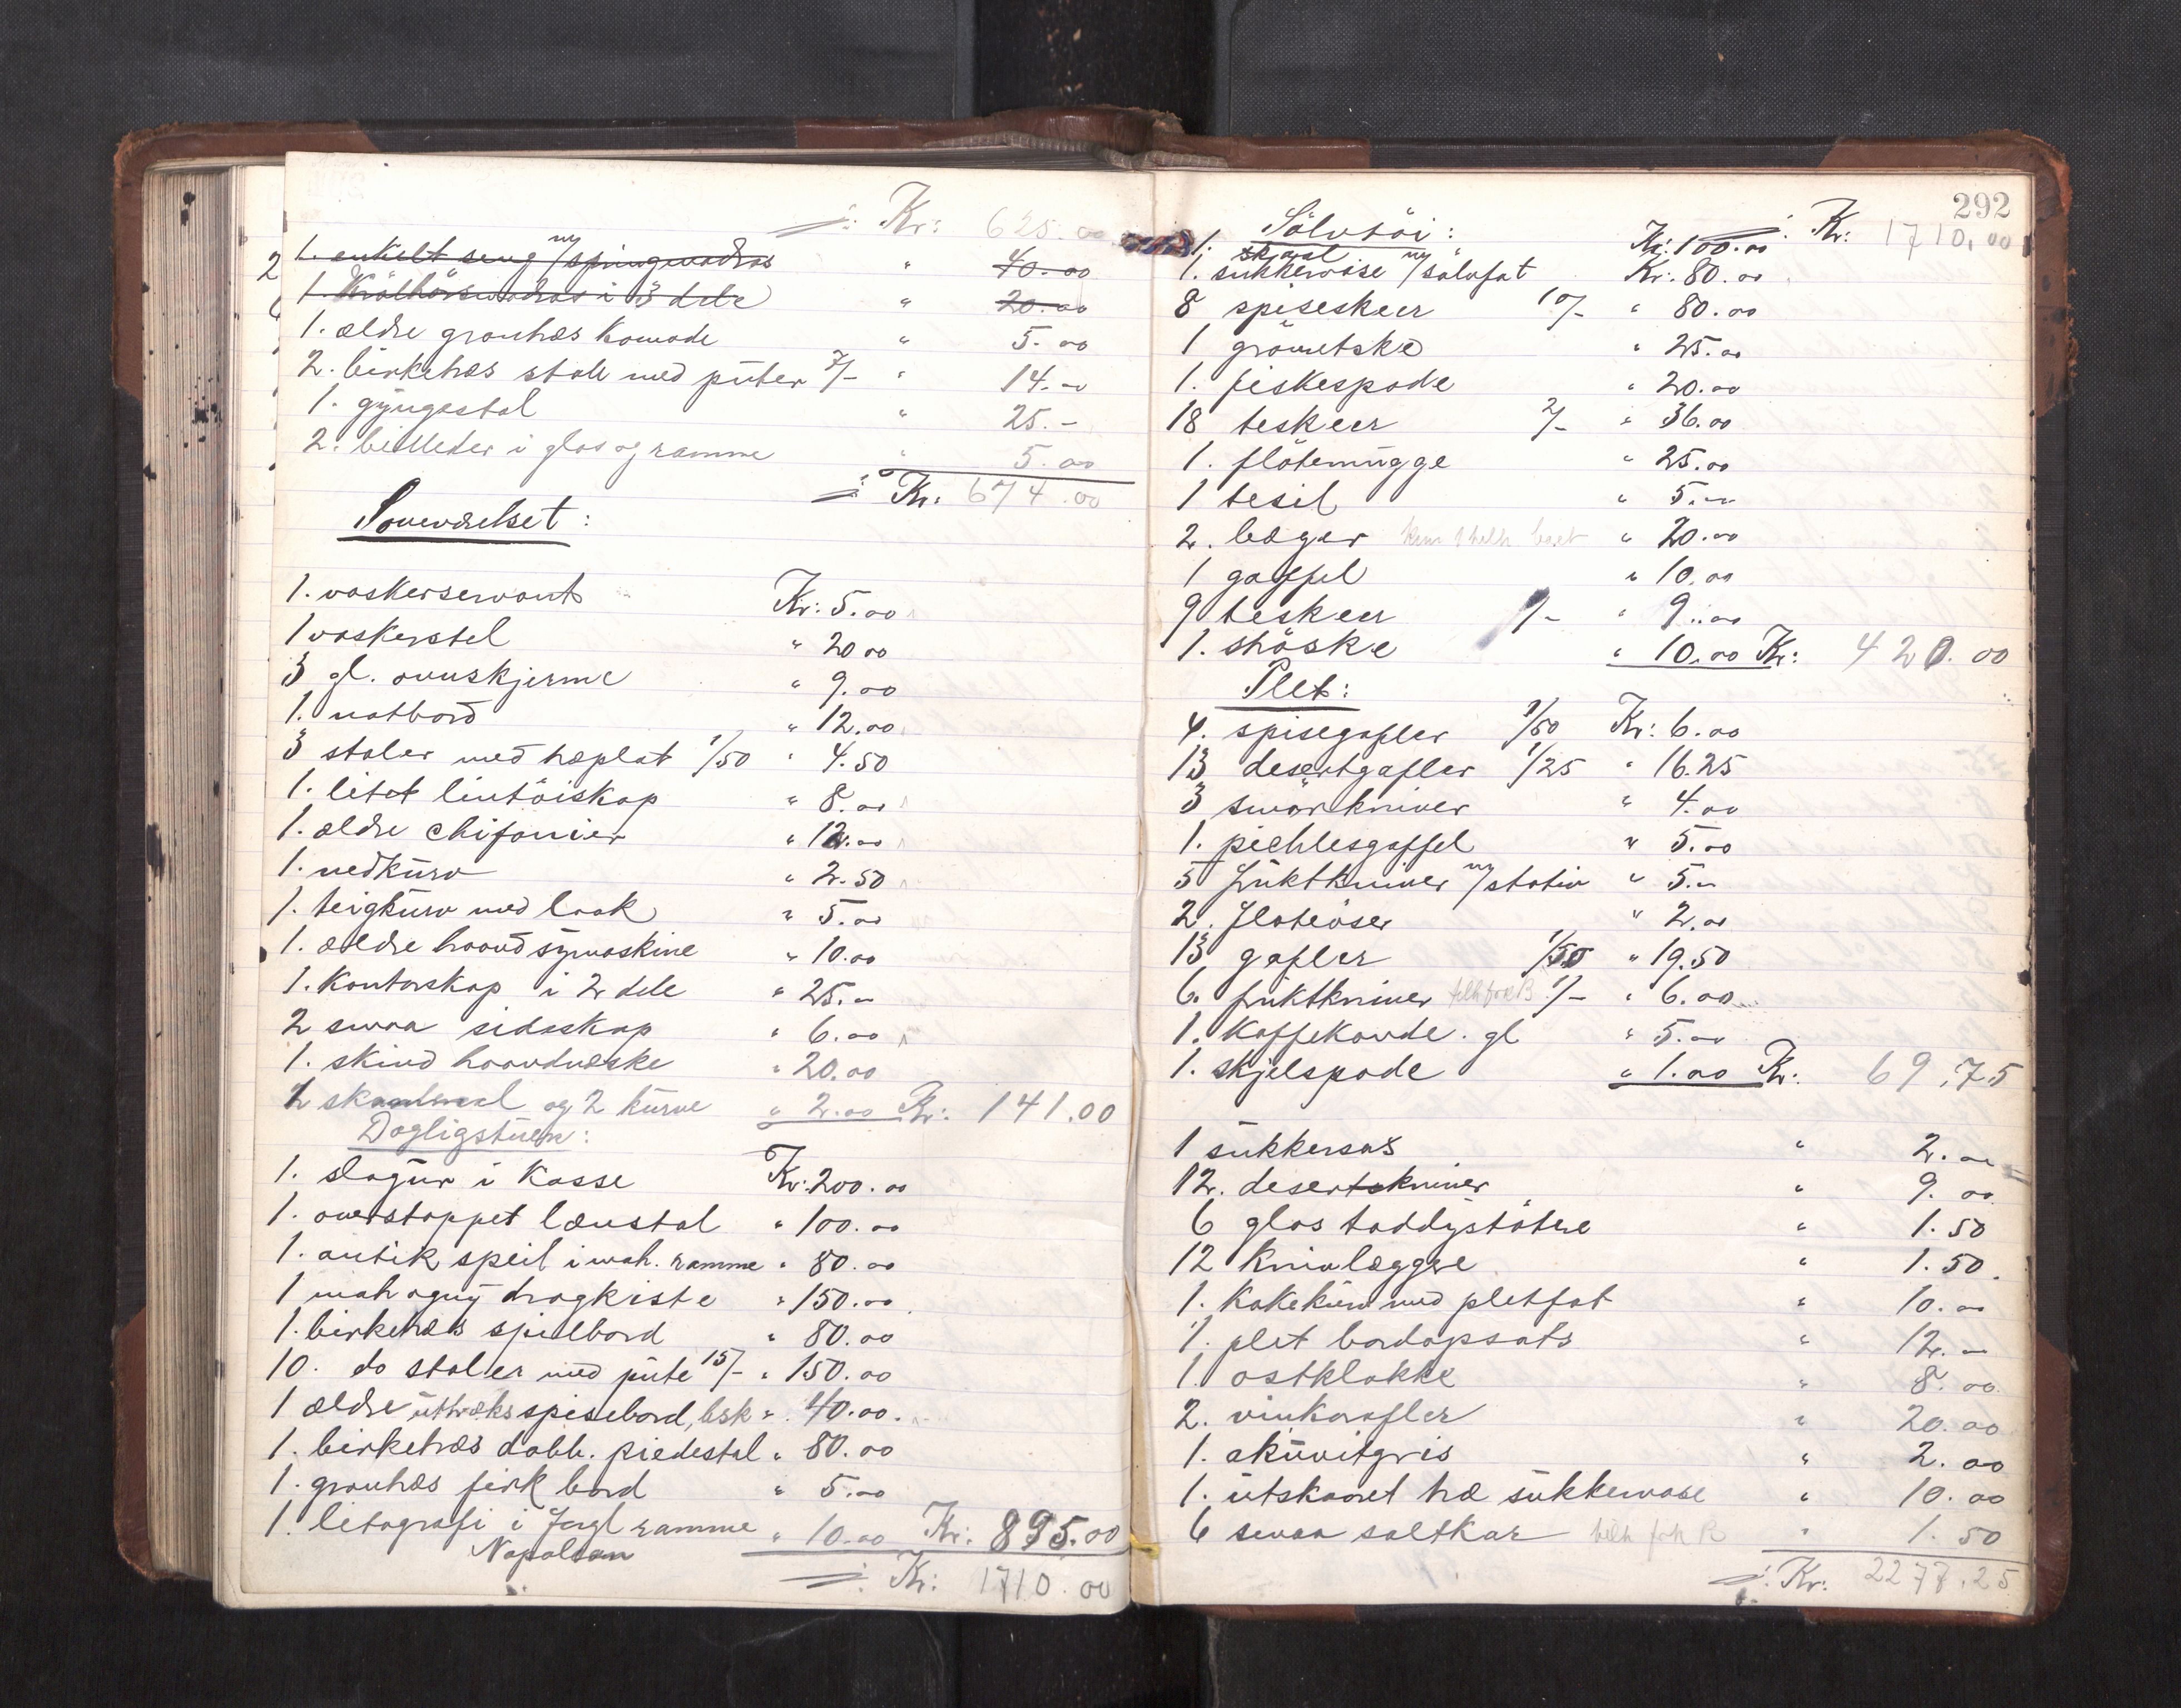 Kr: 625.00
1. enkelt seng m/springmadras " 40.00
1. Krølhårsmadras i 3 dele " 20.00
1. ældre grantræs komode " 5.00
2. birketræs stole med puter 7/- " 14.00
1. gyngestol " 25.-
2. billeder i glas og ramme " 5.00
Kr: 674.00
Soveværelset:
1. vaskerservant Kr: 5.00
1 vaskerstel " 20 00
3 gl. ovnskjerme " 9.00
1. natbord " 12.00
3 stoler med træplat 1/50 " 4.50
1. litet lintöiskap " 8.00
1. ældre chifonier " 12.00
1. vedkurv " 2.50
1. teigkurv med laak " 5.00
1. ældre haandsymaskine " 10.00
1. Kontorskap i 2 dele " 25.-
2 smaa sidaskap " 6.00
1. skind haandvæske " 20.00
2 og 2 kurve " 2.00 Kr: 141.00
Dagligstuen:
1. slagur i Kasse Kr: 200.00
1. overstoppet lænstol " 100.00
1. antik speil i mah. ramme " 80.00
1 mahogny dragkiste " 150.00
1. birketræs spillbord " 80.00
10. do stoler med pute 15/- " 150.00
1 ældre uttræks spisebord, bsk " 40.00.
1. birketræs dobb. piedestal " 80.00
1. grantræs firk bord " 5.00
1. litografi i forgl ramme " 10.00 Kr: 895.00
Napoleon
Kr: 1710.00
292
Sölvtöi: Kr: 1710,00
1. skjaal Kr: 100.00
1. sukkervase m/ sölvfat Kr: 80.00
8 spiseskeer 10/- " 80.00
1 grömetske " 25.00
1. fiskespade " 20.00
18 teskeer 2/- " 36.00
1. flötemugge " 25.00
1 tesil " 5.-
2. bæger " 20.00
1 gaffel " 10.00
9 teskeer 1/- " 9.00
1. ströske " 10.00 Kr: 420.00
Plet:
4. spisegafler 1/50 Kr: 6.00
13 desertgafler 1/25 " 16.25
3 smörkniver " 4.00
1. pichlesgaffel " 5.00
5 fruktkniver m/stativ " 5.-
2. flateöser " 2.00
13 gafler 1/50 " 19.50
6. fruktkniver 1/- " 6.00
1. Kaffekande. gl " 5.00
1. skjelspade " 1.00 Kr: 69,75
1 sukkersax " 2.00
12. desertskniver " 9.00
6 glas toddystötere " 1.50
12 Knivlæggere " 1.50.
1. Kakekurv med pletfat " 10.00
1. plet bordopsats " 12.-
1. ostklokke " 8.00
2. vinkarafler " 20.00
1. akuvitgris " 2.00
1. utskaaret træ sukkervase " 10.00
6 smaa saltkar " 1.50
Kr: 2277.25